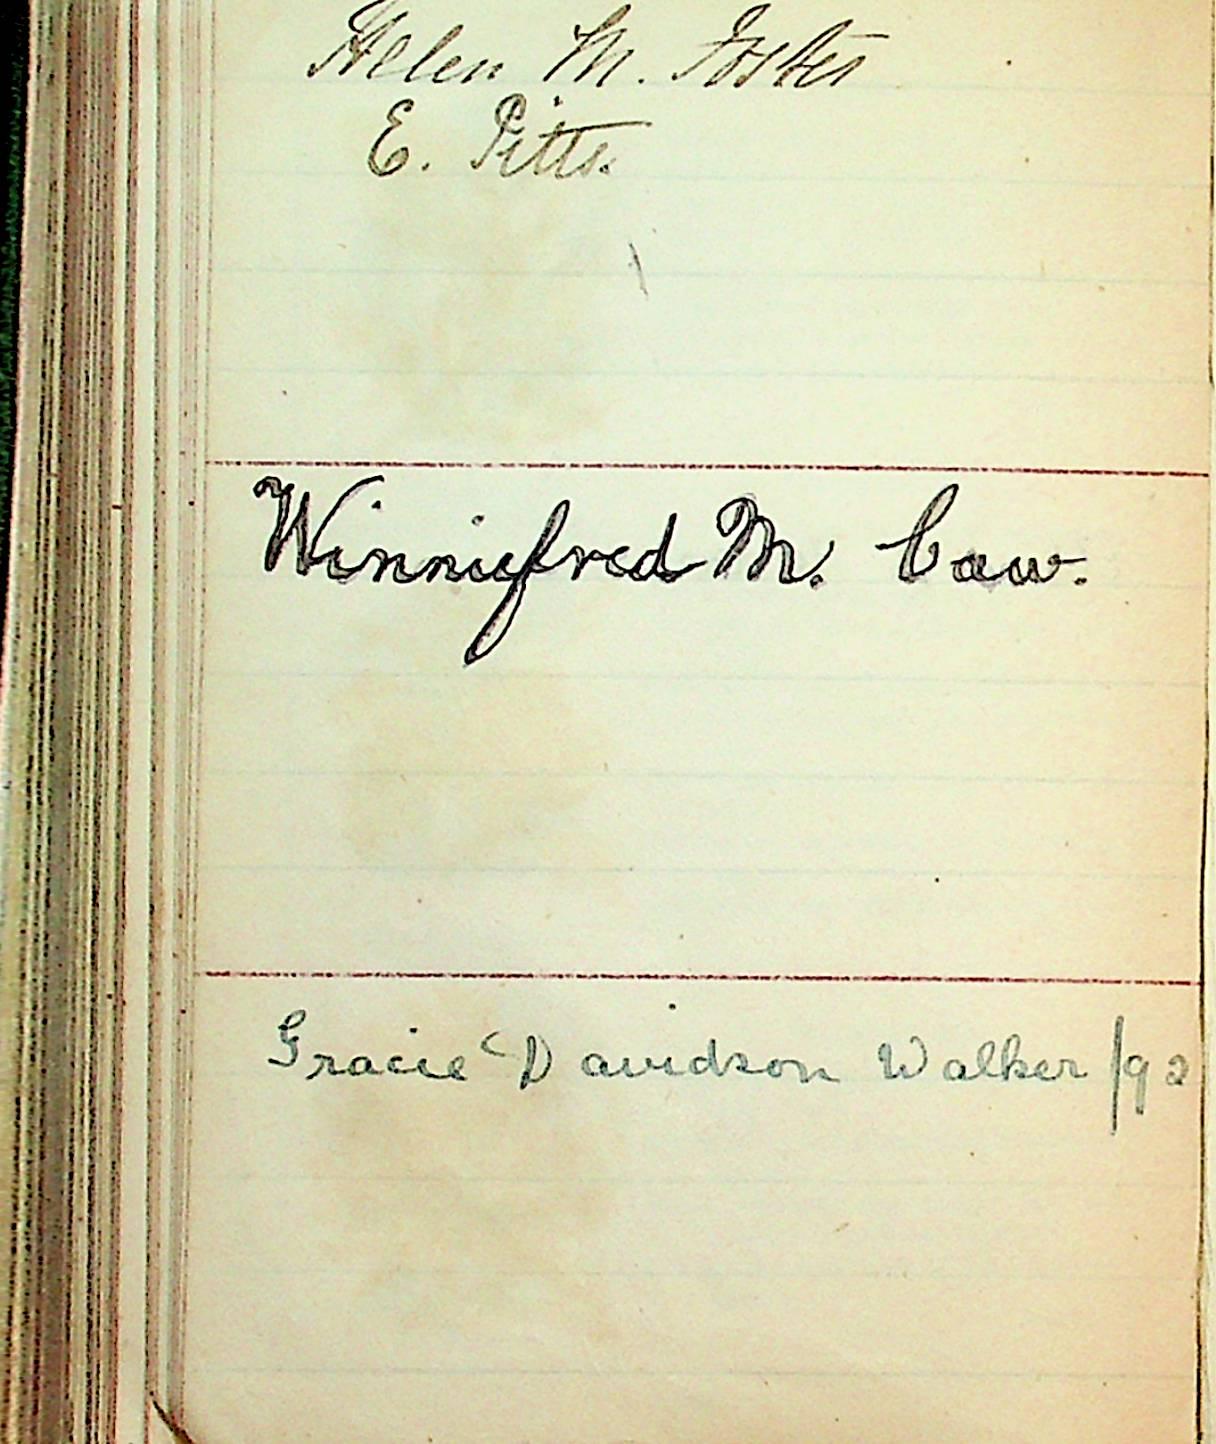 Helen M. Foster
E. Pitts.
Winnifred M. Caw.
Gracie Davidson Walker /92